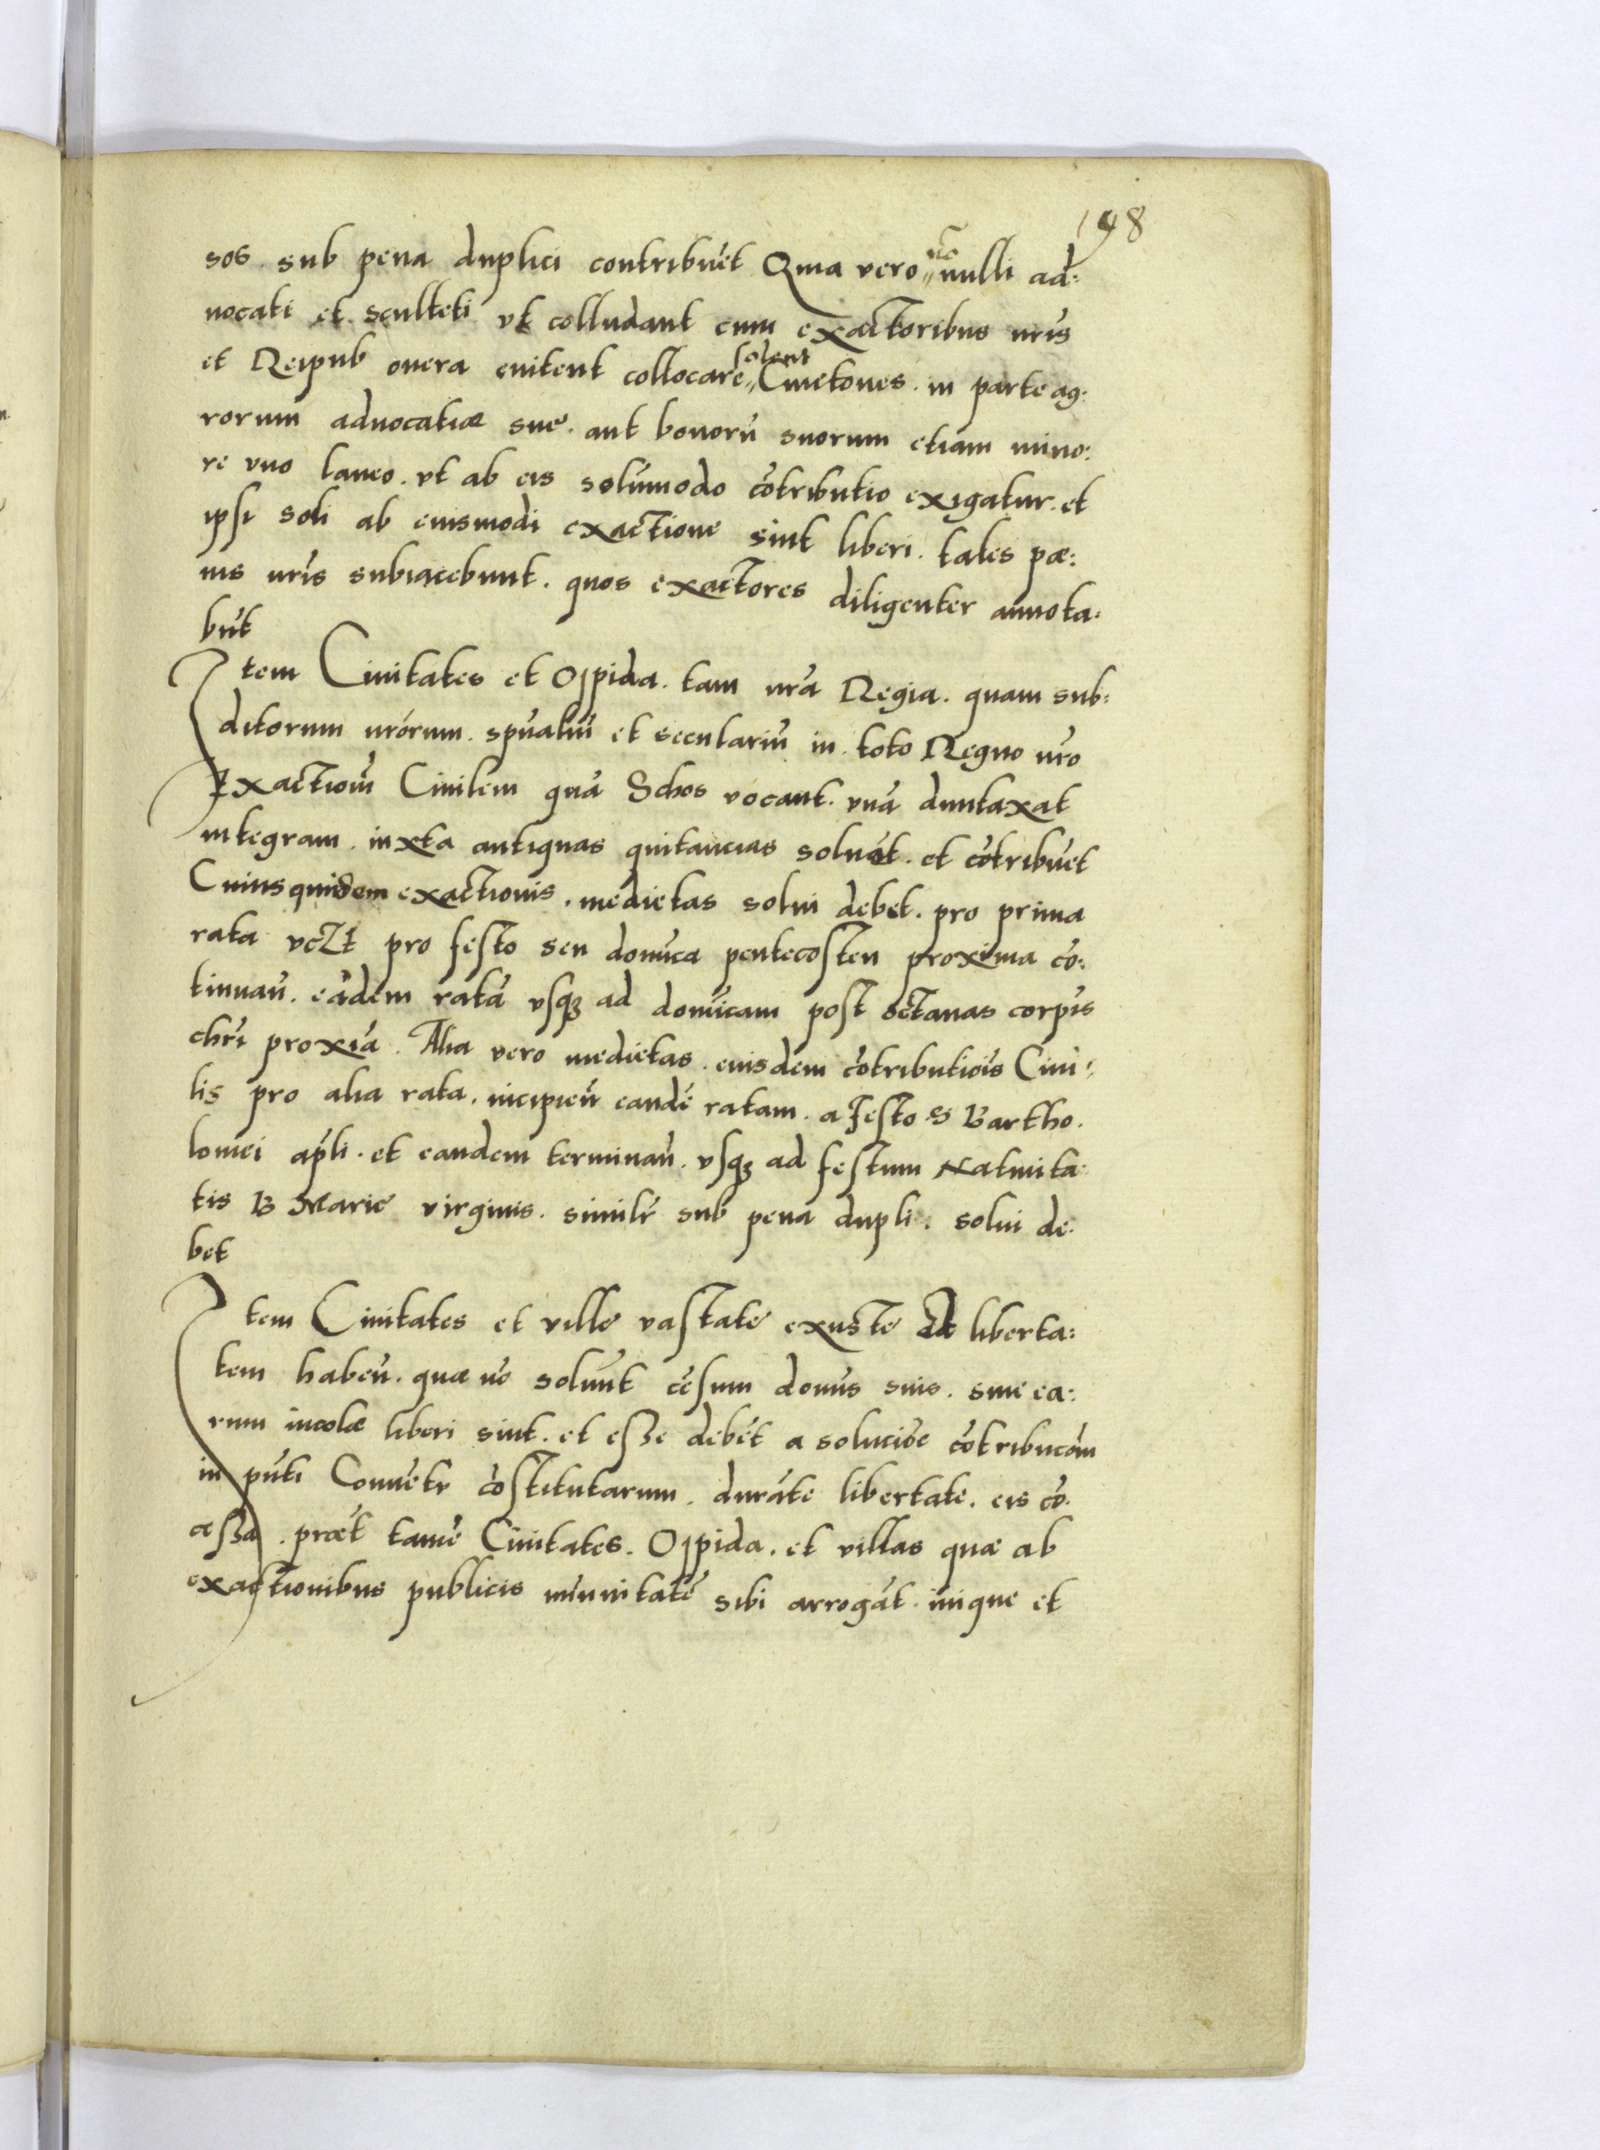 198
sos sub pena duplici contribuēt Quia vero nō nulli ad:
uocati et sculteti vt colludant cum exactoribus nr̄is
et Reipub onera euitent collocare solent Cmetones. in parte ag:
rorum aduocatiæ sue. aut bonorū suorum etiam mino:
re vno laneo. vt ab eis solūmodo cōtributio exigatur. et
ipsi soli ab eiusmodi exactione sint liberi. tales pæ:
nis nr̄is subiacebunt. quos exactores diligenter annota:
būt
Item Ciuitates et Oppida. tam nr̄a Regia. quam sub:
ditorum nr̄orum. spūaliū et seculariū in toto Regno nr̄o
Exactionē Ciuilem quā Schos vocant. vnā duntaxat
integram. iuxta antiquas quitancias soluāt. et cōtribuēt
Cuiusquidem exactionis. medietas solui debet. pro prima
rata vcZt pro festo seu domīca pentecosten proxima cō:
tinuan̄. eādem ratā vsqꝫ ad domīcam post octauas corpīs
chrī proxiā. Alia vero medietas. eiusdem cōtributiōis Ciui:
lis pro alia rata. incipien̄ eandē ratam. a Festo S Bartho.
lomei apl̄i. et eandem terminan̄. vsqꝫ ad festum Natiuita:
tis B Marie virginis. similr̄ sub pena dupli. solui de:
bet
Item Ciuitates et ville vastate exuste Et liberta:
tem haben̄. quæ nō soluūt cēsum domīs suis. siue ea:
rum incolæ liberi sint. et esse debēt a soluciōe cōtribucōm
in pn̄ti Conuētu cōstitutarum. durāte libertate. eis cō.
cæssa. præt tamē Ciuitates. Oppida. et villas quæ ab
exactionibus publicis imunitatē sibi arrogāt. inique et